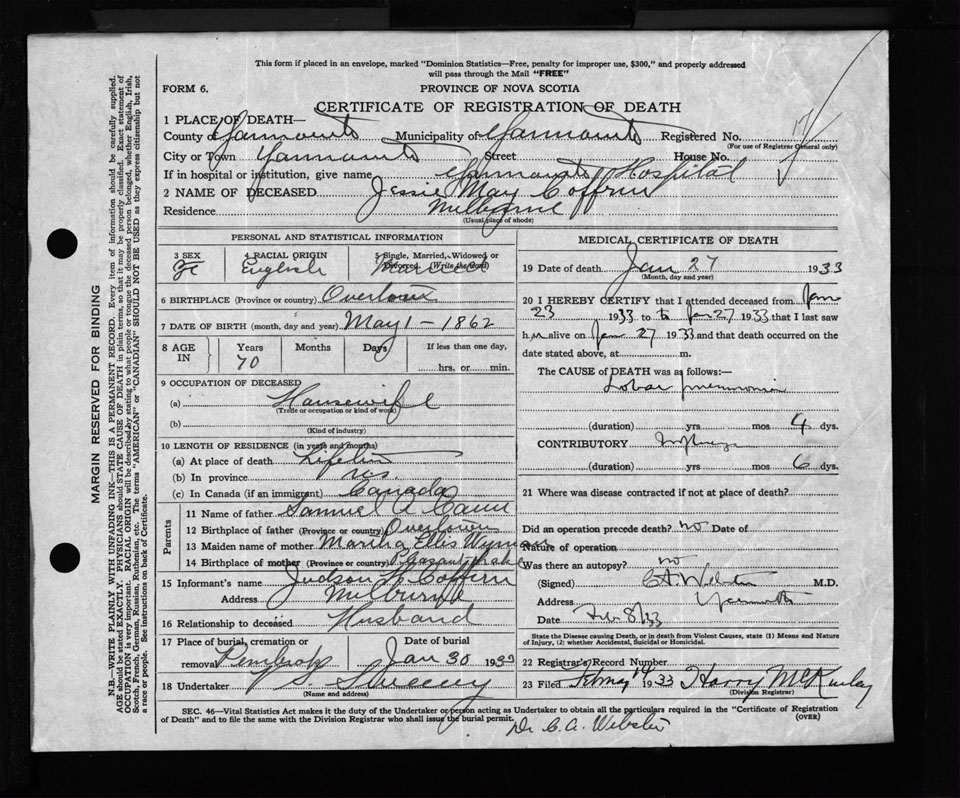 This form if placed in an envelope, marked "Dominion Statistics—Free, penalty for improper use, $300," and properly addressed
will pass through the Mail "FREE"
FORM 6.
PROVINCE OF NOVA SCOTIA
CERTIFICATE OF REGISTRATION OF DEATH
1 PLACE OF DEATH—
County of Yarmouth Municipality of Yarmouth Registered No.
(For use of Registrar General only)
City or Town Yarmouth Street House No.
If in hospital or institution, give name Yarmouth Hospital
2 NAME OF DECEASED Jessie May Coffin
Residence Melbourne
(Usual place of abode)
PERSONAL AND STATISTICAL INFORMATION
3 SEX 4 RACIAL ORIGIN 5 Single, Married, Widowed or
Divorced (Write the word)
F English Married
6 BIRTHPLACE (Province or country) Overton
7 DATE OF BIRTH (month, day and year) May 1 - 1862
8 AGE IN Years Months Days If less than one day,
70 hrs. or min.
9 OCCUPATION OF DECEASED
(a) Housewife
(Trade or occupation or kind of work)
(b)
(Kind of industry)
10 LENGTH OF RESIDENCE (in years and months)
(a) At place of death Lifetime
(b) In province
(c) In Canada (if an immigrant) Canada
Parents
11 Name of father Samuel A Cann
12 Birthplace of father (Province or country) Overton
13 Maiden name of mother Martha Ellis Wyman
14 Birthplace of mother (Province or country) Pleasant
15 Informant's name Judson Coffin
Address Melbourne
16 Relationship to deceased Husband
17 Place of burial, cremation or Date of burial
removal Pembroke Jan 30 1933
18 Undertaker V. S. Sweeny
(Name and address)
MEDICAL CERTIFICATE OF DEATH
19 Date of death Jan 27 1933
(Month, day and year)
20 I HEREBY CERTIFY that I attended deceased from Jan
23 1933 to Jan 27 1933 that I last saw
h er alive on Jan 27 1933 and that death occurred on the
date stated above, at m.
The CAUSE OF DEATH was as follows:
Lobar pneumonia
(duration) yrs mos 4 dys.
CONTRIBUTORY
(duration) yrs mos 6 dys.
21 Where was disease contracted if not at place of death?
Did an operation precede death? no Date of
Nature of operation
Was there an autopsy? no
(Signed) C A Webster M.D.
Address Yarmouth
Date Feb 8/33
State the Disease causing Death, or in death from Violent Causes, state (1) Means and Nature
of Injury, (2) whether Accidental, Suicidal or Homicidal.
22 Registrar's Record Number
23 Filed 1933 Harry McKinlay
(Division Registrar)
SEC. 46—Vital Statistics Act makes it the duty of the Undertaker or person acting as Undertaker to obtain all the particulars required in the "Certificate of Registration
of Death" and to file the same with the Division Registrar who shall issue the burial permit.
(OVER)
Dr C. A. Webster
MARGIN RESERVED FOR BINDING
N.B.—WRITE PLAINLY WITH UNFADING INK—THIS IS A PERMANENT RECORD. Every item of information should be carefully supplied.
AGE should be stated EXACTLY. PHYSICIANS should STATE CAUSE OF DEATH in plain terms, so that it may be properly classified. Exact statement of
OCCUPATION is very important. RACIAL ORIGIN will be described by stating to what people or tongue the deceased person belonged, whether English, Irish,
Scotch, French, German, Russian, Ruthenian, etc. The terms "AMERICAN" or "CANADIAN" SHOULD NOT BE USED as they express citizenship but not
a race or people. See instructions on back of Certificate.